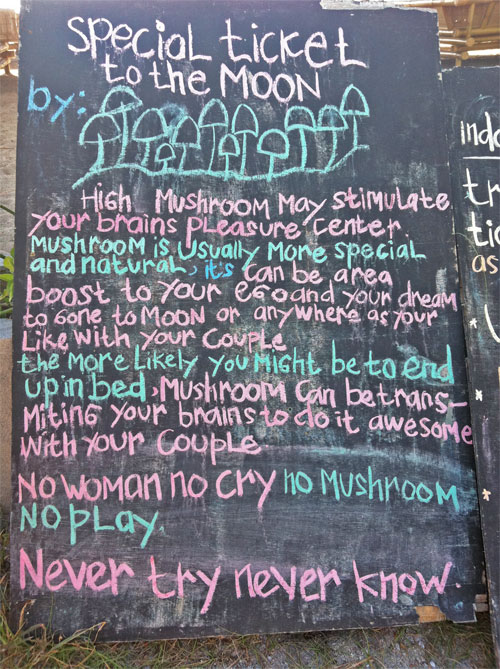 special ticket
to the MOON
by:
High Mushroom May stimulate
your brains pleasure center.
Mushroom is Usually More special
and natural, it's can be area
boost to your ego and your dream
to gone to Moon or anywhere as your
Like with your Couple
the More Likely you Might be to end
up in bed, Mushroom Can be trans-
Miting your brains to do it awesome
With your Couple
No woman no cry no Mushroom
No play.
Never try never know.
Indo
tr
tic
as